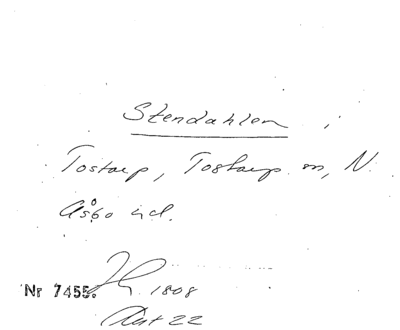 Stendahlen i
Tostarp, Tostarp sn, N.
Åsbo hd.
Nr 7455. 1808
Akt 22